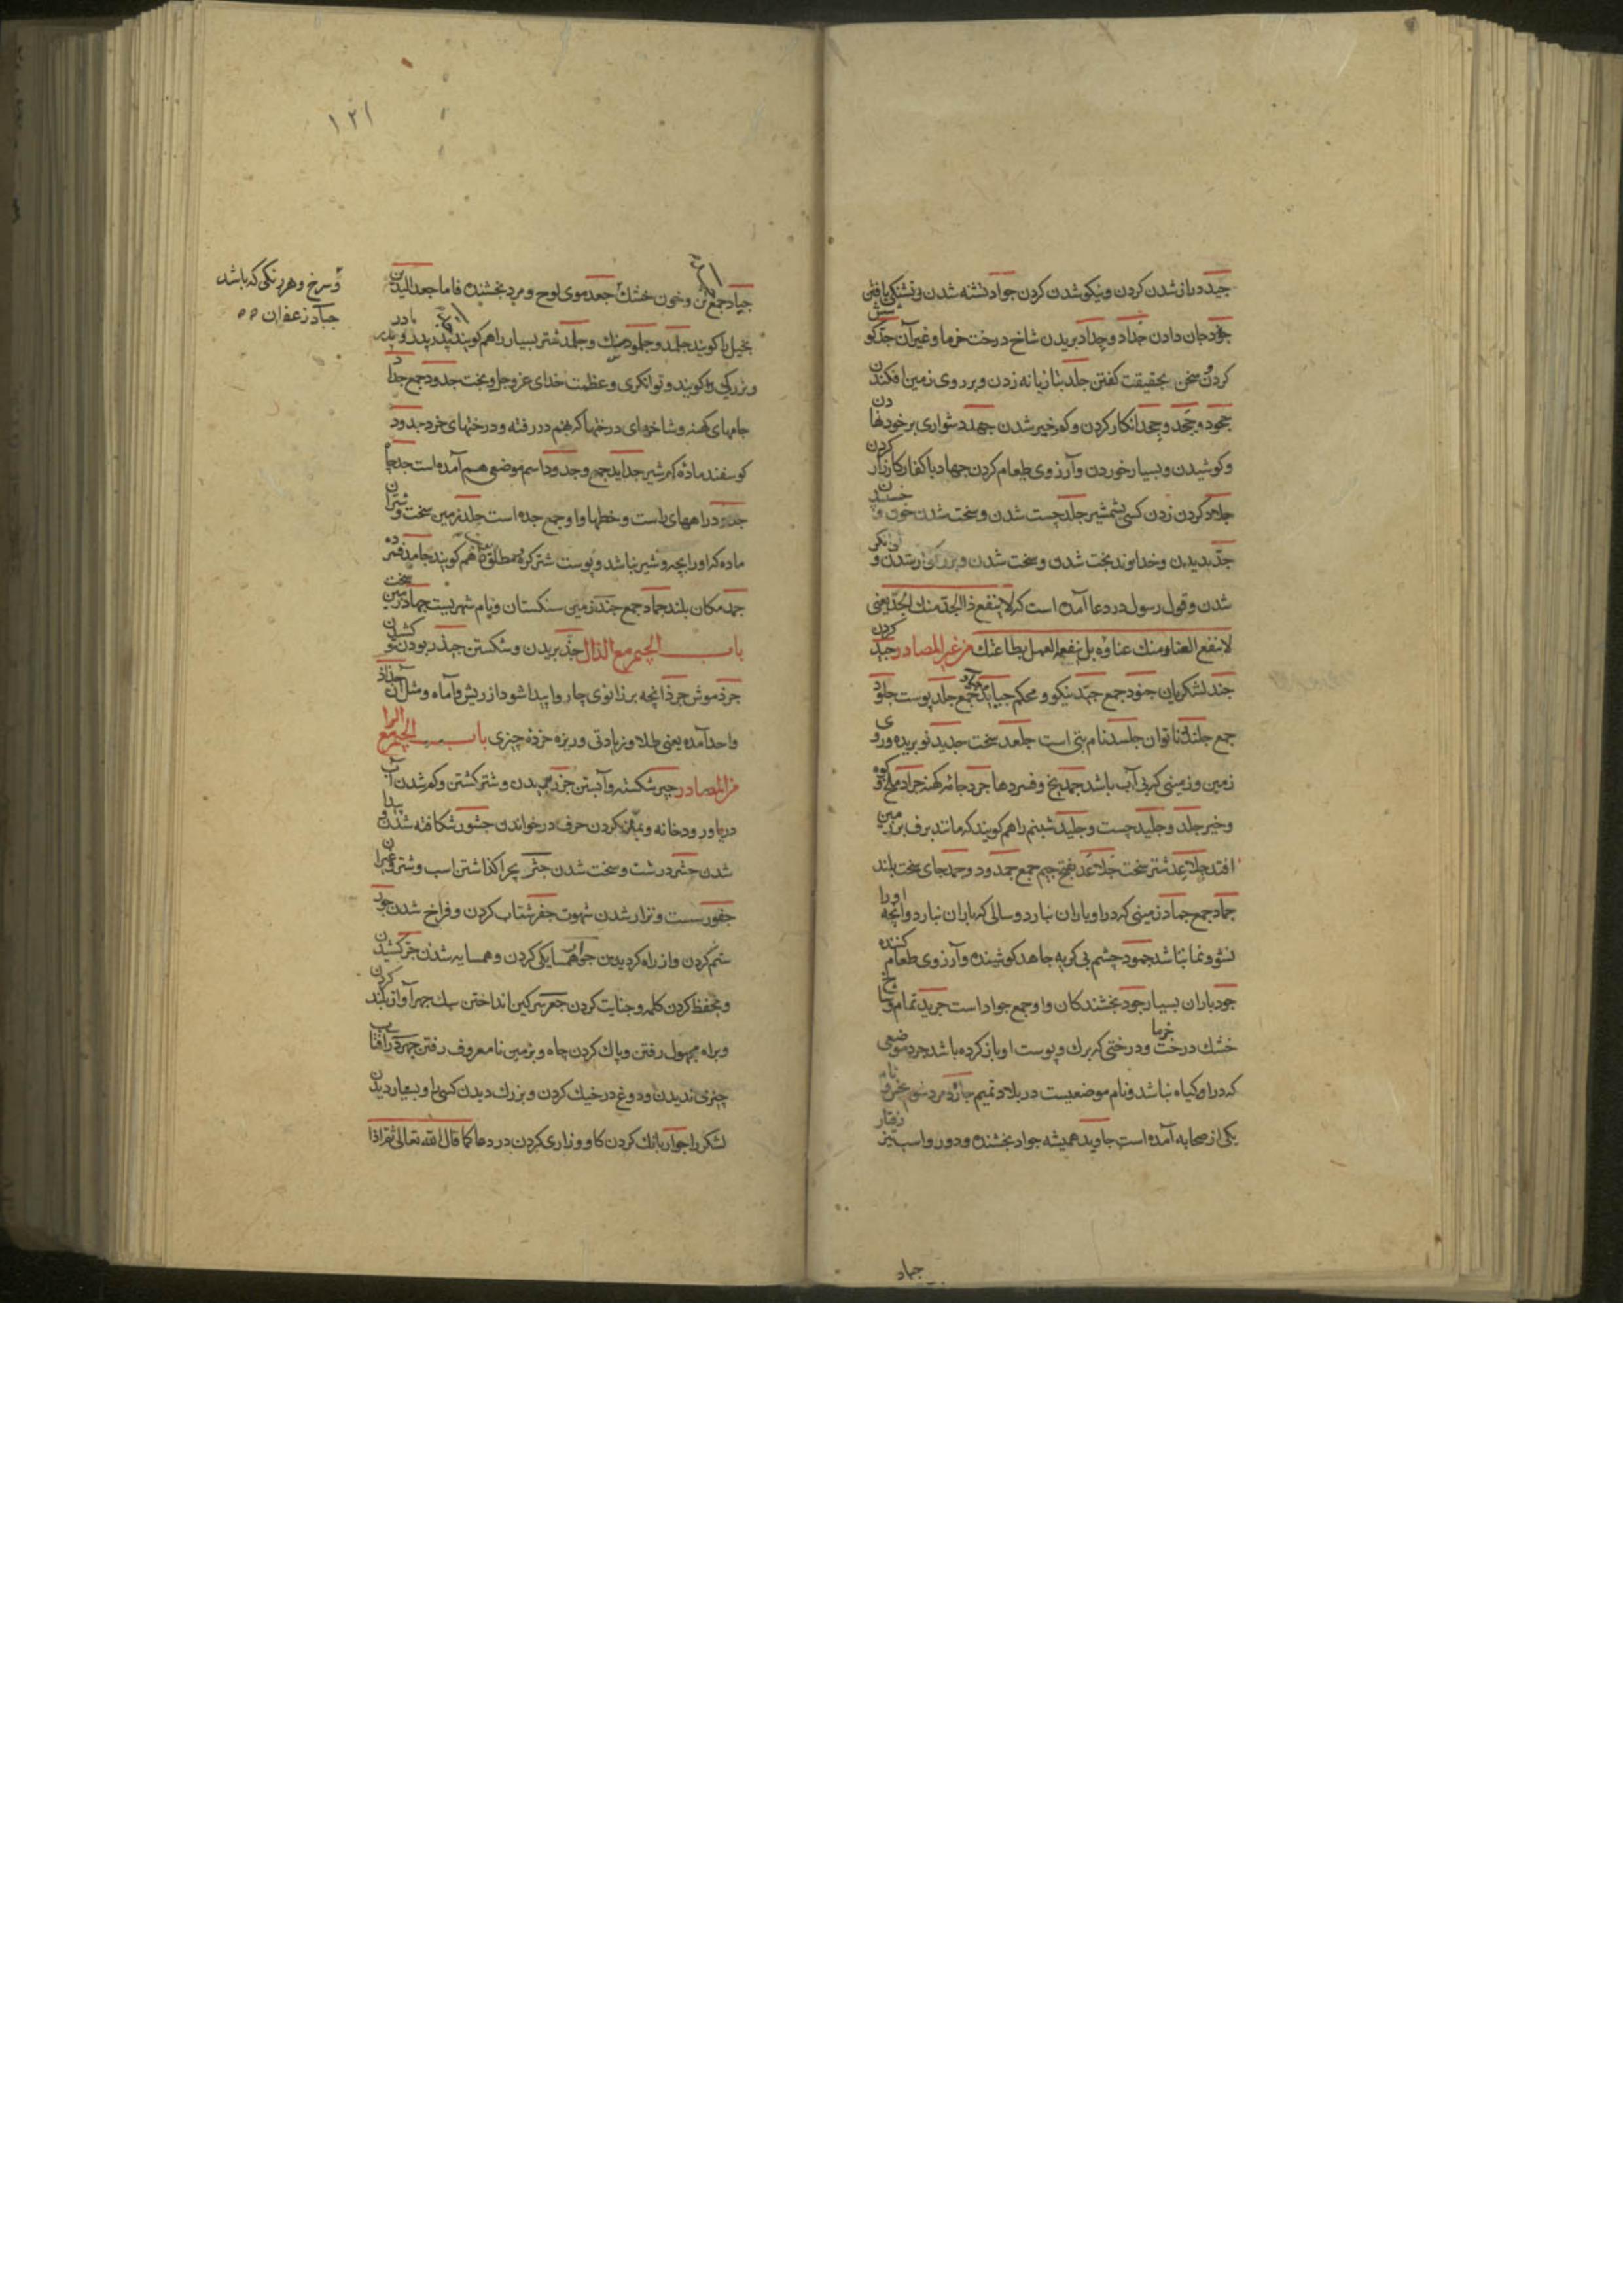 جید دراز شدن کردن و نیکو شدن کردن جواد تشنه شدن و تشنکی یافتن
جود جان دادن جداد و جداد بریدن شاخ درخت خرما و غیر آن جد کو
کردن سخن بحقیقت کفتن جلد بتازیانه زدن و بر روی زمین افکندن
جحود و جحد و جحد انکار کردن و کم خیر شدن جهد دشواری بر خود نها دن
و کوشیدن و بسیار خوردن و آرزوی طعام کردن جهاد با کفار کارزار کردن
جلاد کردن زدن کسی بشمشیر جلد چست شدن و سخت شدن خون و
جد بریدن و خداوند بخت شدن و سخت شدن و بزرک و توانکر
شدن و قول رسول در دعا آمده است که لا ینفع ذا الجد منک الجد یعنی
لا ینفع الغنا و منک غناؤه بل ینفعه العمل بطاعتک من غیر المصادر
جند لشکریان جنود جمع جید نیکو و محکم جمع جلد پوست جلود
جمع جلند ناتوان جلسد نام بتی است جلعد سخت جدید نو بریده و روی
زمین و زمینی که بی آب باشد جمد یخ و فسردها جرد جامه کهنه جراد ملخ
و خیر جلد و جلید چست و جلید شبنم را هم کویند که مانند برف بر زمین
افتد جلاعد شتر سخت جلاعد بفتح جیم جمع جمد ود و جمد جای سخت بلند
جماد جمع جماد زمینی که در او باران نبارد و سالی که باران نبارد و آنچه او را
نشو و نما نباشد جمود چشم بی کریه جاهد کوشنده و آرزوی طعام کننده
جود باران بسیار جود بخشندکان و او جمع جواد است جرید تمام و شاخ
خشک درخت خرما و درختی که برک و پوست او باز کرده باشد جرد موضعی
که در او کیاه نباشد و نام موضعیست در بلاد تمیم
یکی از صحابه آمده است جاوید همیشه جواد بخشنده و دور و اسب تیز رفتار
جماد
۱۲۱
جیاد جمع و خون خشک جعد موی لوح و مرد بخشنده فاما جعد الیدین
بخیل را کویند جلمد و جلمود سنک و جلمد شتر بسیار را هم کویند جد پدر پدر و پدر مادر
و بزرکی را کویند و توانکری و عظمت خدای عز و جل و بخت جدود جمع جداد
جامهای کهنه و شاخهای درختها که بهم در رفته و درختهای خرد جدود
کوسفند ماده کم شیر جداید جمع و جدود اسم موضعی هم آمده است
جدد راههای راست و خطها و او جمع جده است جلد زمین سخت و شتران
ماده که او را بچه و شیر نباشد و پوست شتر کره مطلق را هم کویند جامد فسرده
جمد مکان بلند جماد جمع جند زمین سنکستان و نام شهریست جهاد زمین سخت
باب الجیم مع الذال جذ بریدن و شکستن جبذ ربودن و کشیدن
جرذ موش جرذ آنچه بر زانوی چاروا پیدا شود از ریش و آماه و مثل آن جذاذ
واحد آمده یعنی طلا و زیادتی و ریزه خرده چیزی باب الجیم مع الرا
من المصادر جبر شکسته و آبستن جزر بریدن و شتر کشتن و کم شدن آب
دریا و رودخانه و بکردن حرف در خواندن جشور شکافته شدن و پیدا
شدن جشر درشت و سخت شدن جشر بچرا کذاشتن اسب و شتر و غیر آن
جفور سست و نزار شدن شهوت جفر شتاب کردن و فراخ شدن جور
ستم کردن و از راه کردیدن جوار همسایکی کردن و همسایه شدن جر کشیدن
و بخفظ کردن کلمه و جنایت کردن جعر سرکین انداختن سک جهر آواز بلند کردن
و براه مجهول رفتن و پاک کردن چاه و بزمین نامعروف رفتن جهر در آفتاب
چیزی ندیدن و دوغ در خیک کردن و بزرک دیدن کسی را و بسیار دیدن
لشکر را جوار بانک کردن کاو و زاری کردن در دعا کما قال الله تعالی ثم اذا
و سرخ و هر رنکی که باشد
جباد زعفران